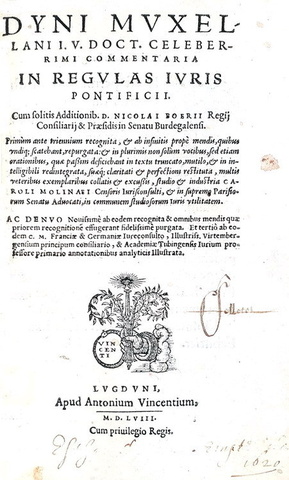 DYNI MVXEL-
LANI I.V. DOCT. CELEBER-
RIMI COMMENTARIA
IN REGVLAS IVRIS
PONTIFICII.
Cum solitis Additionib. D. NICOLAI BOERII Regij
Consiliarij & Præsidis in Senatu Burdegalensi.
Primùm ante triennium recognita, & ab infinitis propè mendis, quibus
vndiq; scatebant, repurgata: & in plurimis non solùm vocibus, sed etiam
orationibus, quæ passim deficiebant in textu truncato, mutilo, & in in-
telligibili redintegrata, suæq; claritati & perfectioni restituta, multis
veteribus exemplaribus collatis & excussis, studio & industria CA-
ROLI MOLINAEI Censoris Iurisconsulti, & in supremo Parisiorum
Senatu Aduocati, in communem studiosorum iuris vtilitatem.
AC DENVO Nouissimè ab eodem recognita & omnibus mendis quæ
priorem recognitionē effugerant fidelissimè purgata. Et tertiò ab eo-
dem C. M. Franciæ & Germaniæ Iureconsulto, Illustriss. Virtember-
gensium principum consiliario, & Academiæ Tubingensis Iurium pro-
fessore primario annotationibus analyticis illustrata.
VIN
CEN
TI
LVGDVNI,
Apud Antonium Vincentium,
M. D. LVIII.
Cum priuilegio Regis.
1620